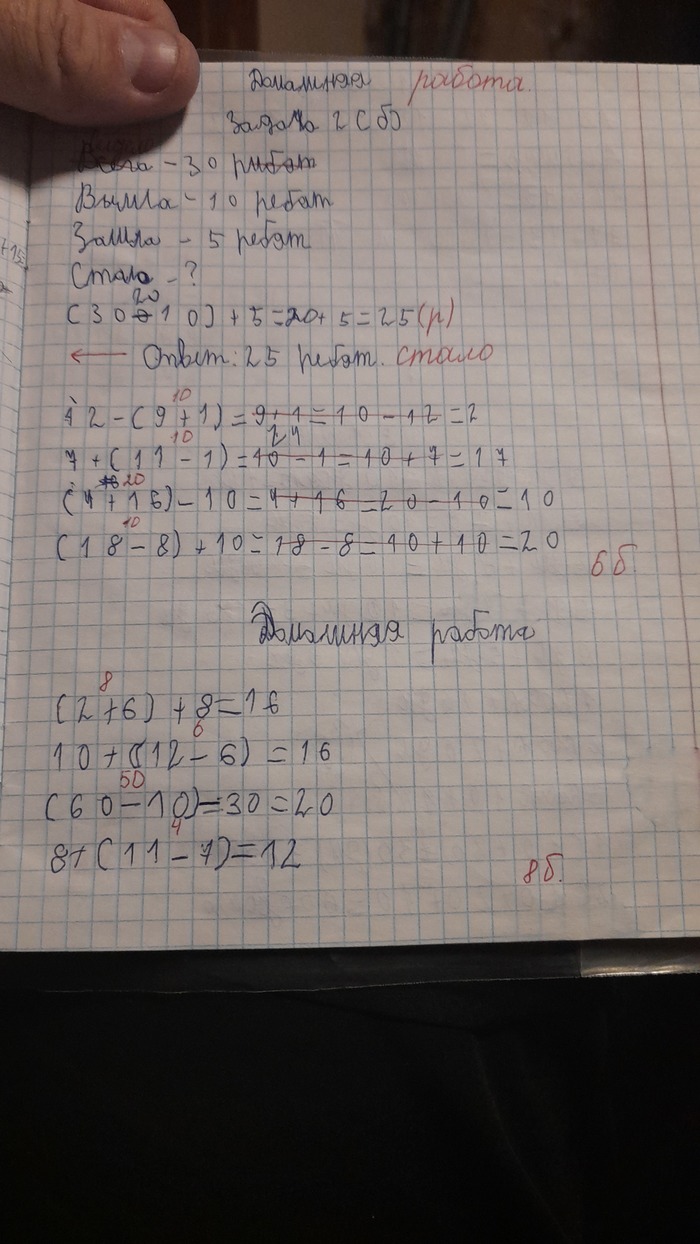 Домашняя работа.
Задача 2 (б)
Всего - 30 рибят
Вышла - 10 ребят
Зашла - 5 ребят
Стало - ?
20
(30-10) + 5 = 20 + 5 = 25 (р)
← Ответ: 25 ребят. стало
10
12 - (9 + 1) = 9 + 1 = 10 - 12 = 2
10
7 + (11 - 1) = 10 - 1 = 10 + 7 = 17
20
(4 + 16) - 10 = 4 + 16 = 20 - 10 = 10
10
(18 - 8) + 10 = 18 - 8 = 10 + 10 = 20
6 б
Домашняя работа
8
(2 + 6) + 8 = 16
6
10 + (12 - 6) = 16
50
(60 - 10) - 30 = 20
4
8 + (11 - 7) = 12
8 б.